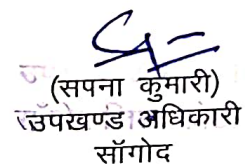 (सपना कुमारी)
उपखण्ड अधिकारी
सॉगोद